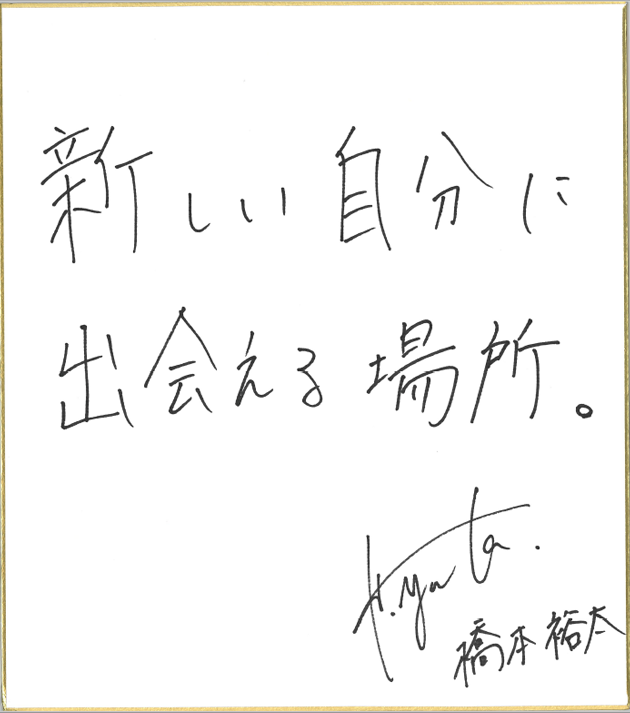 新しい自分に
出会える場所。
H.Yuta.
橋本裕太